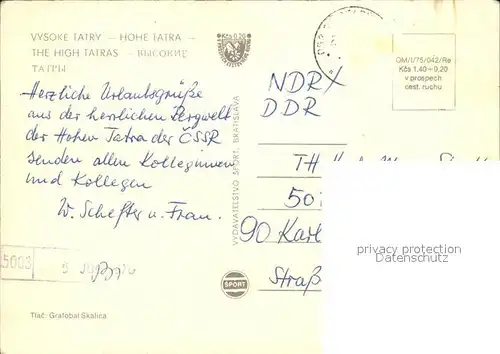 VYSOKÉ TATRY — HOHE TATRA —
THE HIGH TATRAS — ВЫСОКИЕ
ТАТРЫ
Kčs 0,20
OM/I/75/042/Re
Kčs 1.40+0,20
v prospech
cest. ruchu
Herzliche Urlaubsgrüße
aus der herrlichen Bergwelt
der Hohen Tatra der ČSSR
senden allen Kolleginnen
und Kollegen
W. Schefter u. Frau.
VYDAVATEĽSTVO ŠPORT, BRATISLAVA
DDR
TH
90 Karl
Straß
privacy protection
Datenschutz
5003
ŠPORT
Tlač: Grafobal Skalica